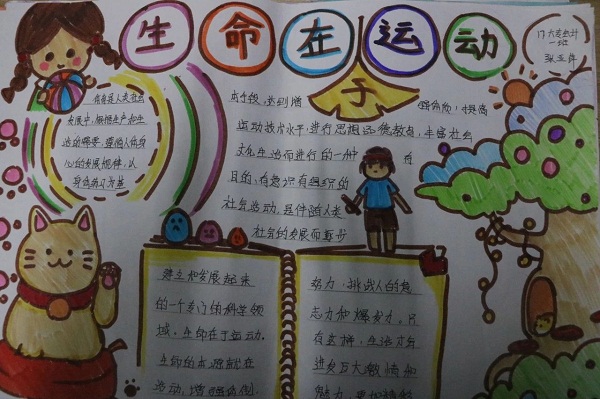 生命在运动
于
体育是人类社会
发展中,根据生产和生
活的需要,遵循人体身
心的发展规律,以
身体练习为基
本手段,达到增
强体质,提高
运动技术水平,进行思想品德教育,丰富社会
文化生活而进行的一种有
目的,有意识有组织的
社会活动,是伴随人类
社会的发展而逐步
建立和发展起来
的一个专门的科学领
域,生命在于运动,
生命的本源就在
运动,增强体制,
努力,挑战人的意
志力和爆发力。只
有这样,生活才会
迸发巨大激情和
魅力,更加精彩